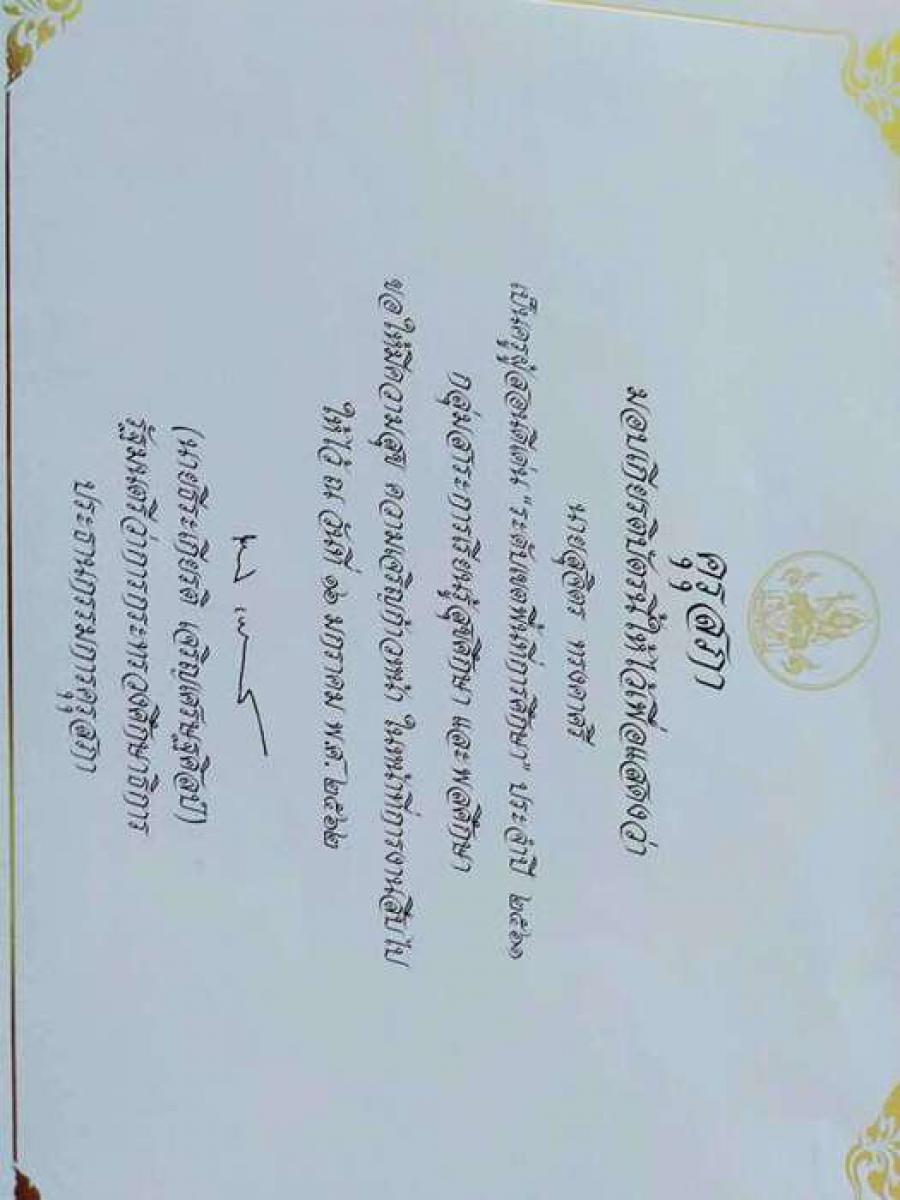 คุรุสภา
มอบเกียรติบัตรนี้ให้ไว้เพื่อแสดงว่า
นายสุจิตร ทรงคาศรี
เป็นครูผู้สอนดีเด่น "ระดับเขตพื้นที่การศึกษา" ประจำปี ๒๕๖๑
กลุ่มสาระการเรียนรู้สุขศึกษา และพลศึกษา
ขอให้มีความสุข ความเจริญก้าวหน้า ในหน้าที่การงานสืบไป
ให้ไว้ ณ วันที่ ๑๖ มกราคม พ.ศ. ๒๕๖๒
(นายธีระเกียรติ เจริญเศรษฐศิลป์)
รัฐมนตรีว่าการกระทรวงศึกษาธิการ
ประธานกรรมการคุรุสภา